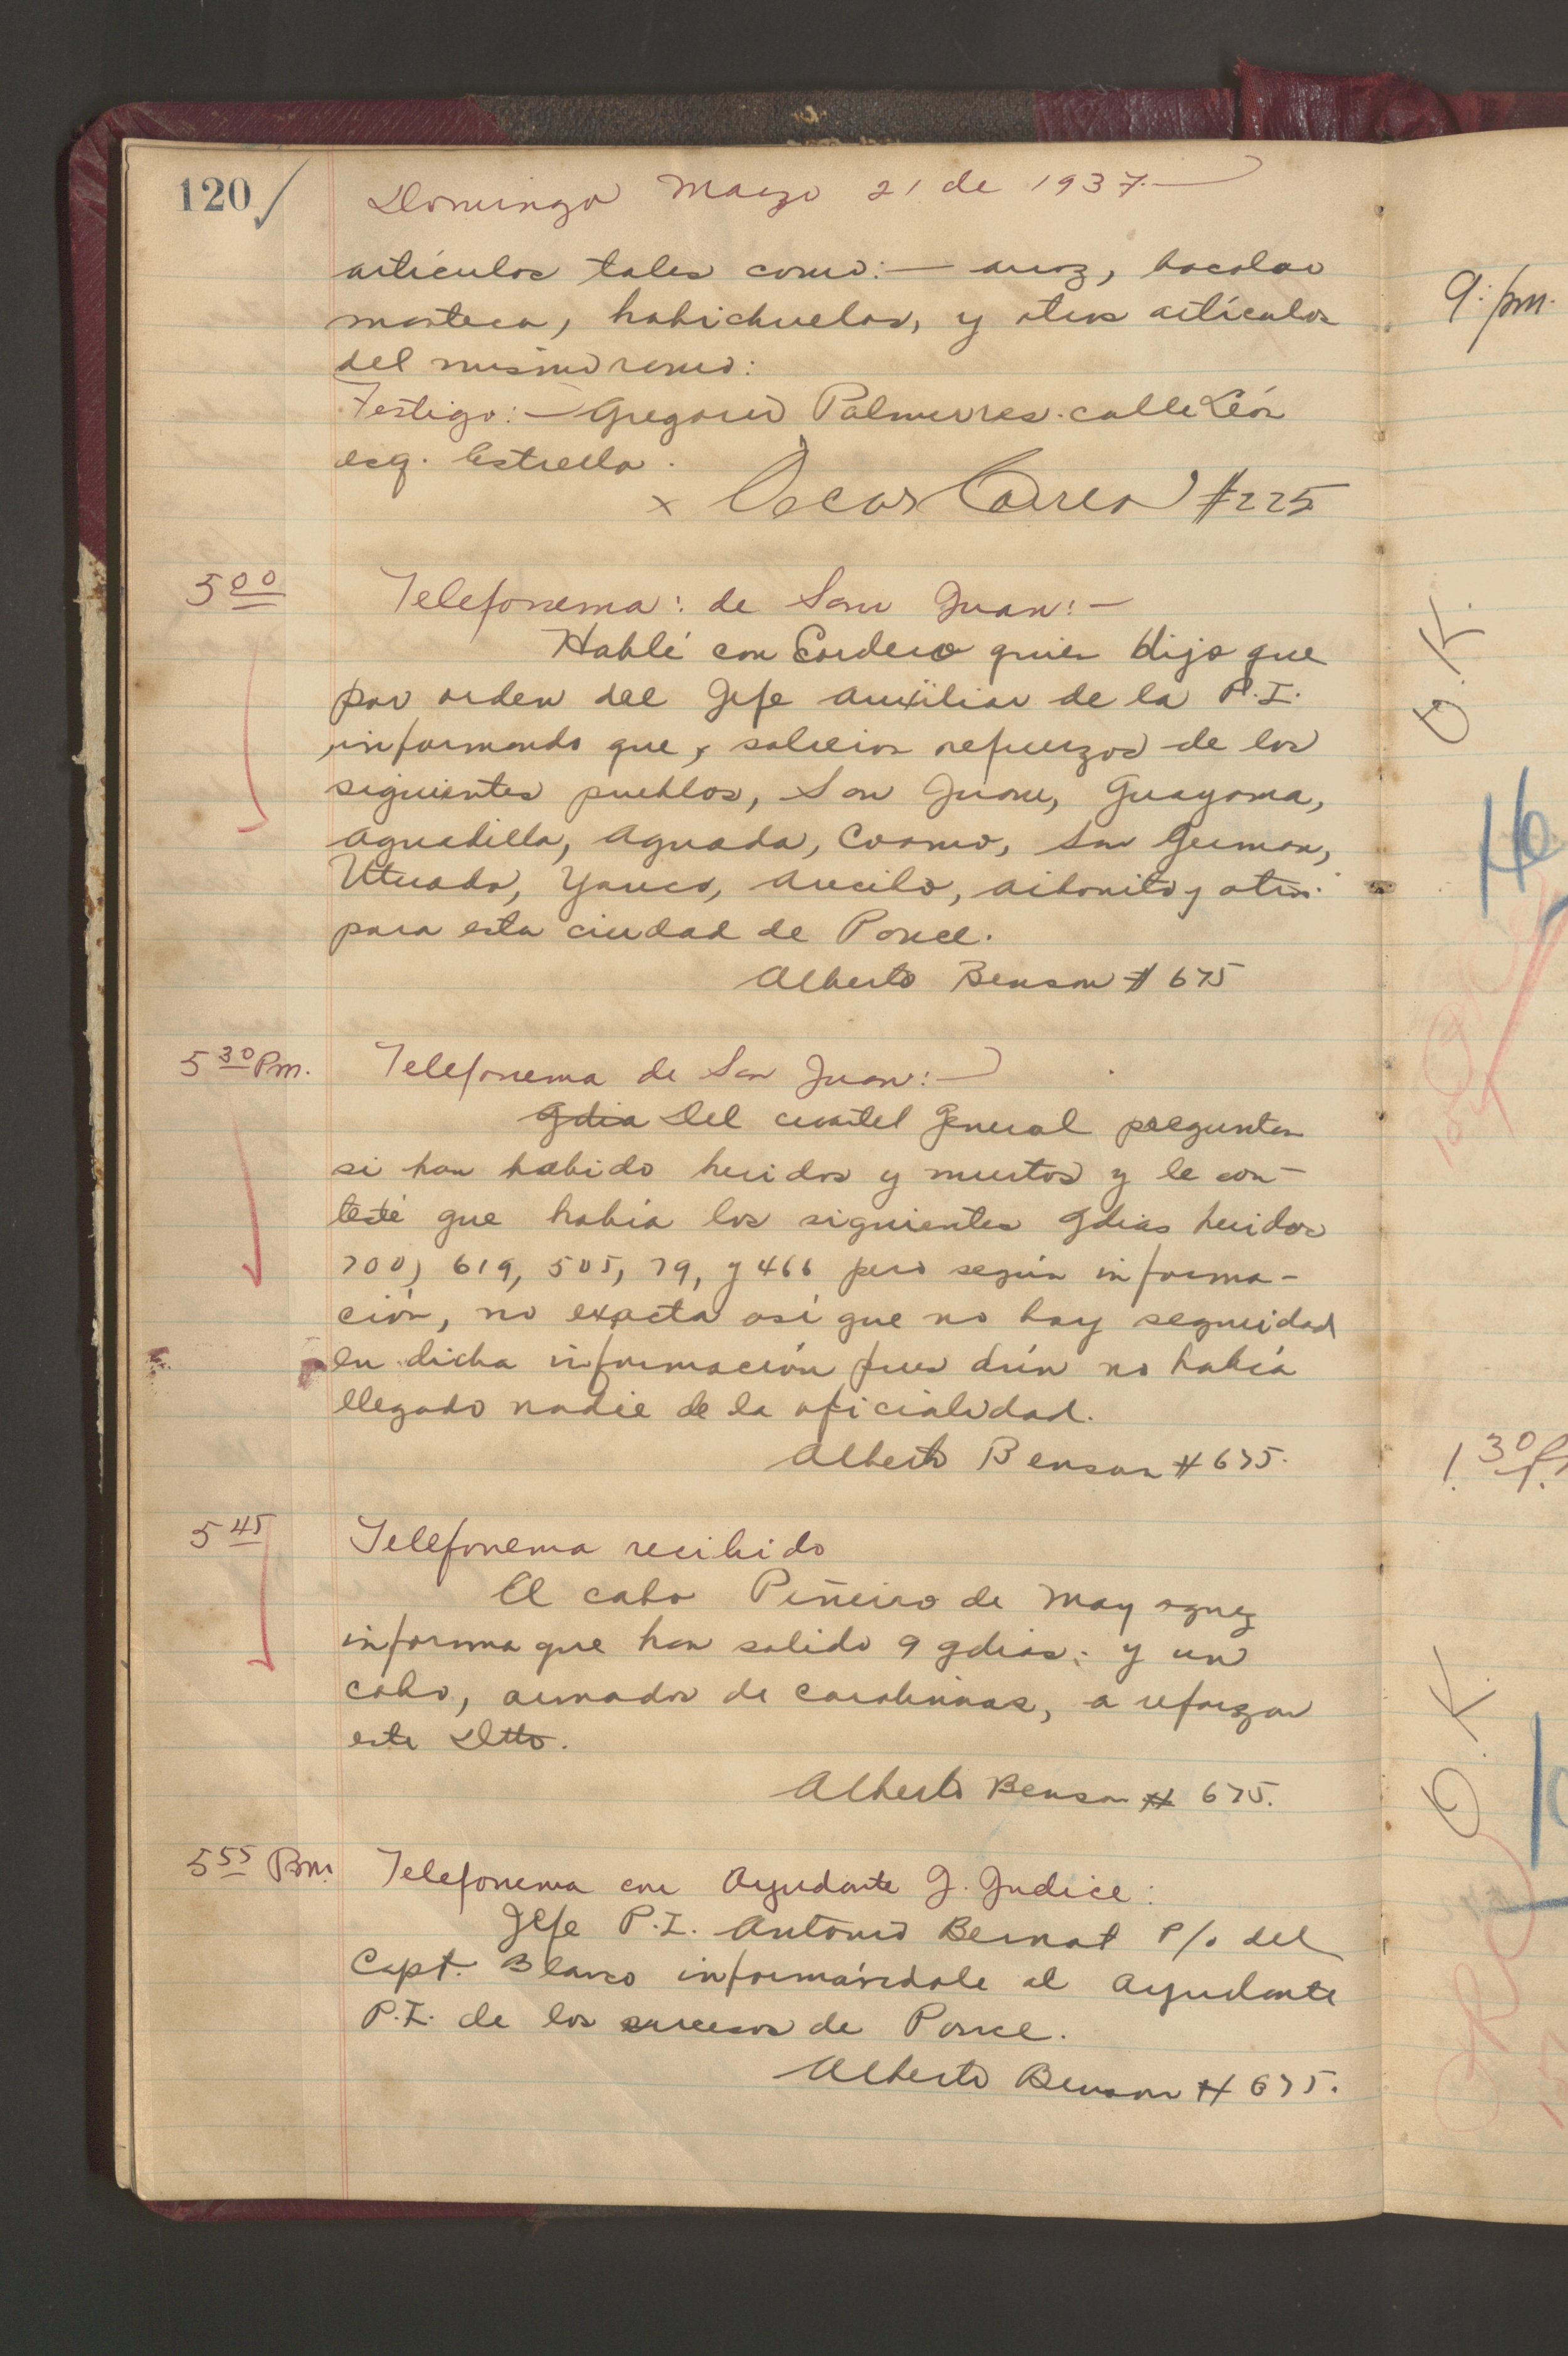 120
Domingo Marzo 21 de 1937.—
artículos tales como:— arroz, bacalao
manteca, habichuelas, y otros artículos
del mismo ramo:
Testigo:— Gregorio calle León
esq. Estrella.
x Oscar Correa #225
5 00
Telefonema: de San Juan:—
Hablé con Cordero quien dijo que
por orden del Jefe Auxiliar de la P.I.
informando que, salieron refuerzos de los
siguientes pueblos, San Juan, Guayama,
Aguadilla, Aguada, Coamo, San German,
Utuado, Yauco, Arecibo, Aibonito y otros.
para esta ciudad de Ponce.
Alberto Benson # 675
5 30 Pm.
Telefonema de San Juan:—
Gdia Del cuartel General preguntan
si han habido heridos y muertos y le con-
testé que había los siguientes gdias heridos
700, 619, 505, 79, y 466 pero según informa-
ción, no exacta así que no hay seguridad
en dicha información pues aún no había
llegado nadie de la oficialidad.
Alberto Benson # 675.
5 45
Telefonema recibido
El cabo Piñeiro de Mayaguez
informa que han salido 9 gdias; y un
cabo, armados de carabinas, a reforzar
este Dtto.
Alberto Benson # 675.
5 55 Pm.
Telefonema con Ayudante J. Judice:
Jefe P.I. Antonio Bernat P/o del
Capt. Blanco informándole al Ayudante
P.I. de los sucesos de Ponce.
Alberto Benson # 675.
9: pm.
O.K.
16
1 30
O.K.